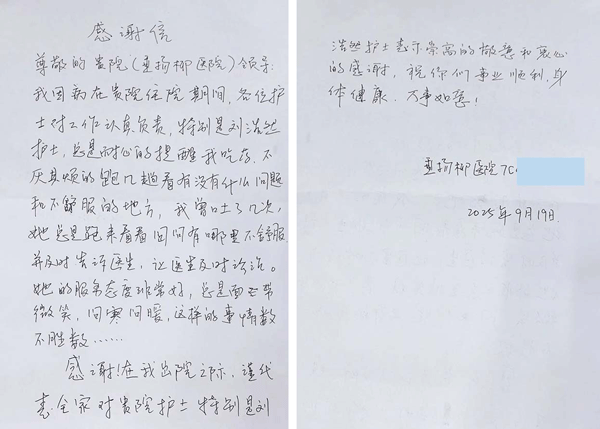 感谢信
尊敬的贵院(垂杨柳医院)领导:
我因病在贵院住院期间,各位护
士对工作认真负责,特别是刘浩然
护士,总是耐心的提醒我吃药.不
厌其烦的跑几趟看有没有什么问题
和不舒服的地方,我曾吐了几次,
她总是跑来看看问问有哪里不舒服
并及时告诉医生,让医生及时诊治。
她的服务态度非常好,总是面上带
微笑,问寒问暖,这样的事情数
不胜数……
感谢!在我出院之际,谨代
表全家对贵院护士特别是刘
浩然护士表示崇高的敬意和衷心
的感谢,祝你们事业顺利,身
体健康,万事如意!
垂扬柳医院7C
2025年9月19日.